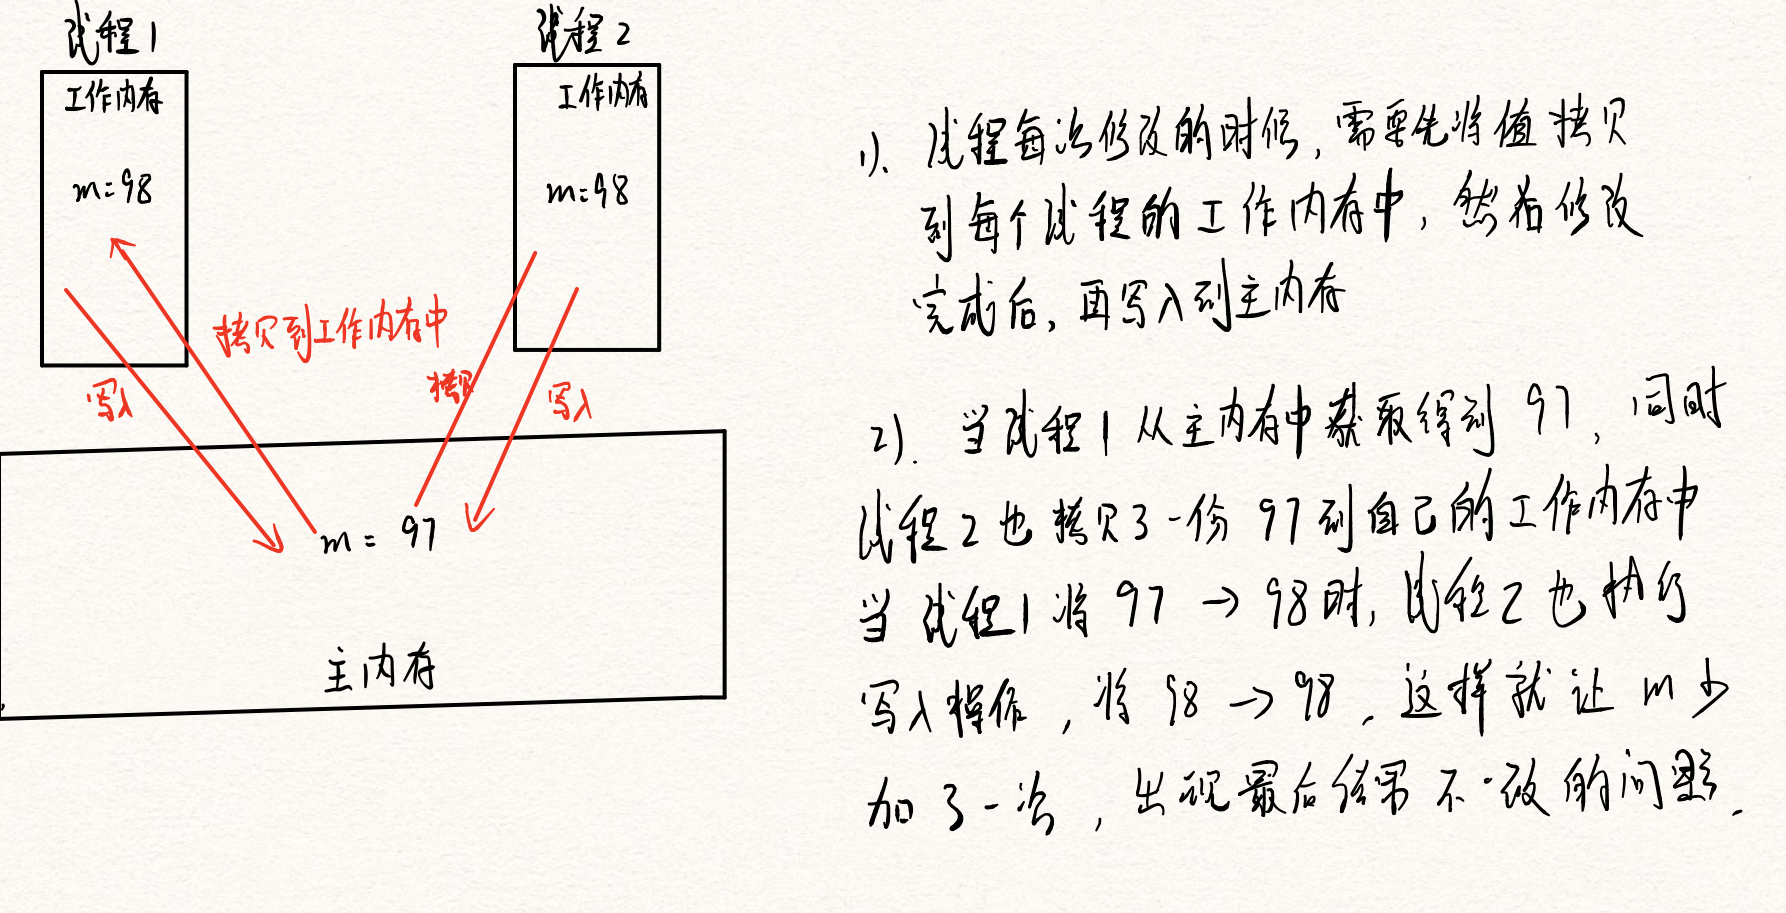 线程1
线程2
工作内存
m=98
工作内存
m=98
拷贝到工作内存中
写入
拷贝
写入
m = 97
主内存
1). 线程每次修改的时候, 需要先将值拷贝
到每个线程的工作内存中, 然后修改
完成后, 再写入到主内存
2). 当线程1从主内存中获取得到 97, 同时
线程2也拷贝了一份 97 到自己的工作内存中
当线程1将 97 → 98 时, 线程2也执行
写入操作, 将 98 → 98. 这样就让 m 少
加了一次, 出现最后结果不一致的问题.